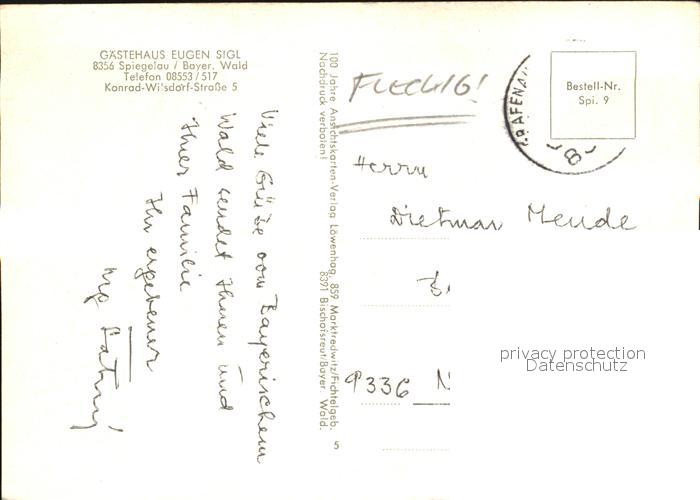 GÄSTEHAUS EUGEN SIGL
8356 Spiegelau / Bayer. Wald
Telefon 08553/517
Konrad-Wilsdorf-Straße 5
Viele Grüße vom Bayerischen
Wald sendet Ihnen und
Ihrer Familie
Ihr ergebener
100 Jahre Ansichtskarten-Verlag Löwenhag, 859 Marktredwitz/Fichtelgeb.
Nachdruck verboten! 8391 Bischofsreut/Bayer. Wald.
5
FLECKIG!
Bestell-Nr.
Spi. 9
Herrn
Dietmar Mende
privacy protection
Datenschutz